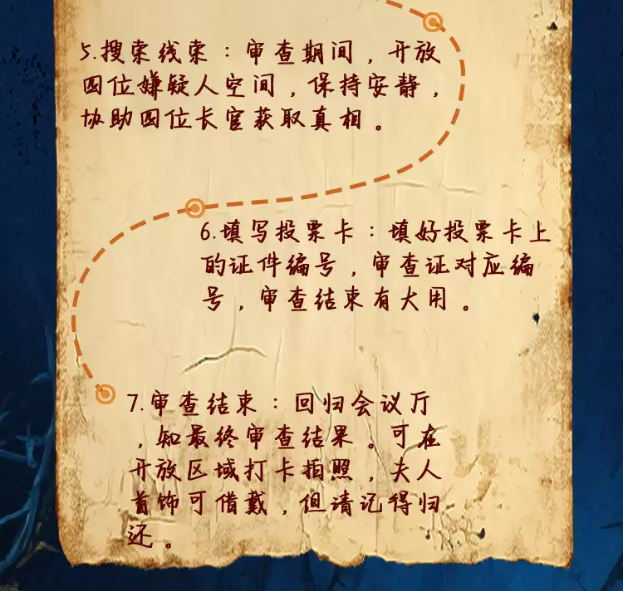 5.搜索线索：审查期间，开放
四位嫌疑人空间，保持安静，
协助四位长官获取真相。
6.填写投票卡：填好投票卡上
的证件编号，审查证对应编
号，审查结束有大用。
7.审查结束：回归会议厅
，知最终审查结果。可在
开放区域打卡拍照，夫人
首饰可借戴，但请记得归
还。